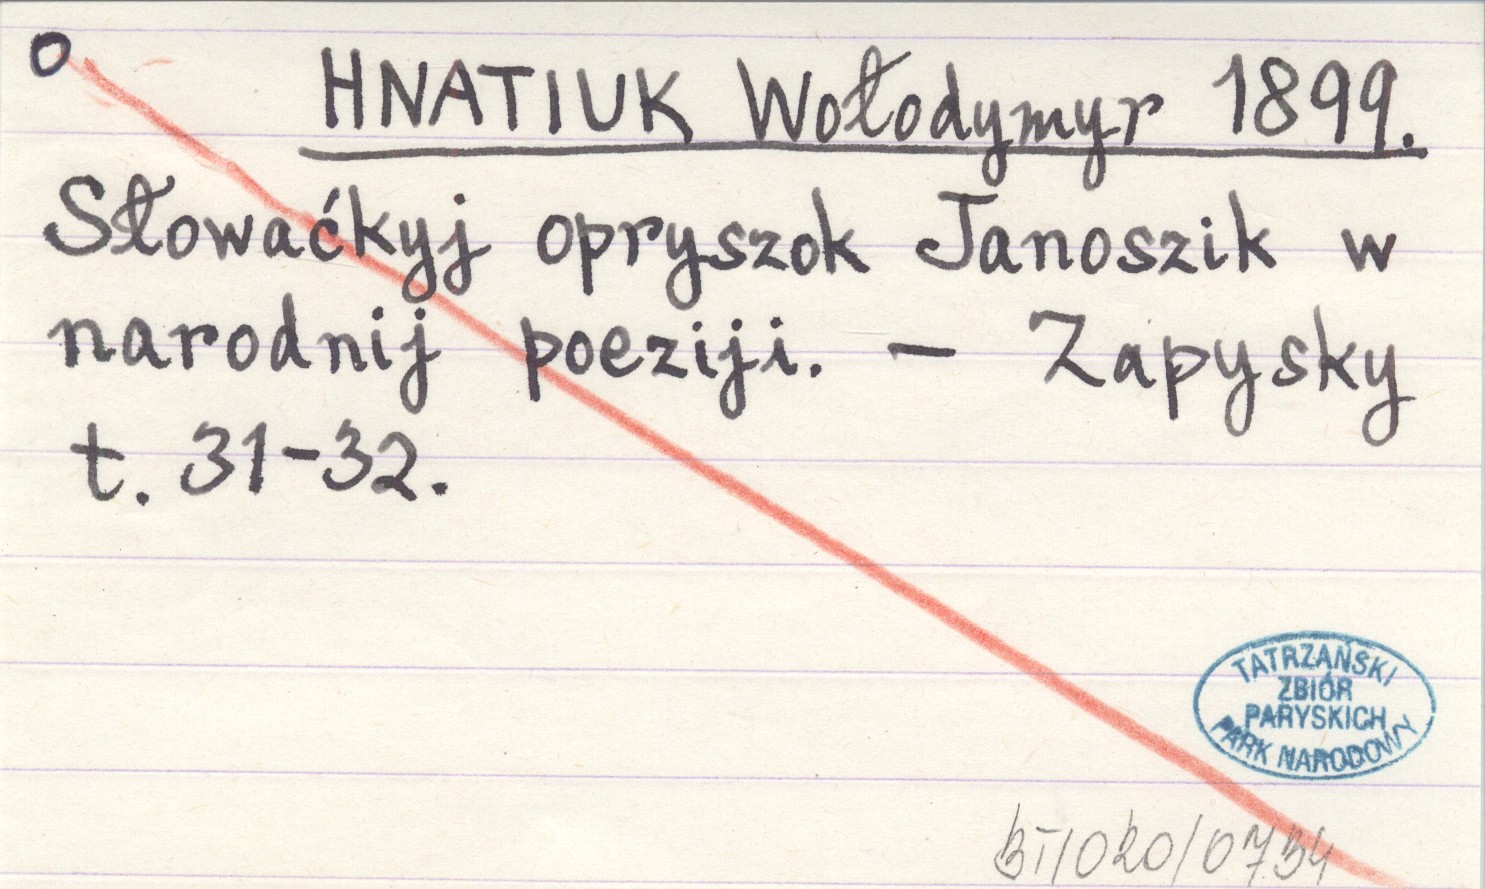 O
HNATIUK Wołodymyr 1899.
Słowaćkyj opryszok Janoszik w
narodnij poeziji. — Zapysky
t. 31-32.
TATRZAŃSKI
ZBIÓR
PARYSKICH
PARK NARODOWY
BT/020/0734